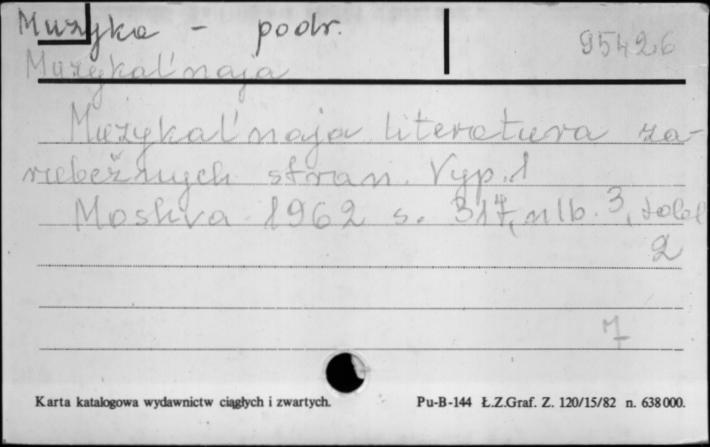 Muzyka - podr.
95426
Muzykal'naja
Muzykal'naja literatura za-
rubežnych stran. Vyp. 1
Moskva 1962 s. 317, nlb. 3, tabl
2
7
Karta katalogowa wydawnictw ciągłych i zwartych.
Pu-B-144 Ł.Z.Graf. Z. 120/15/82 n. 638000.